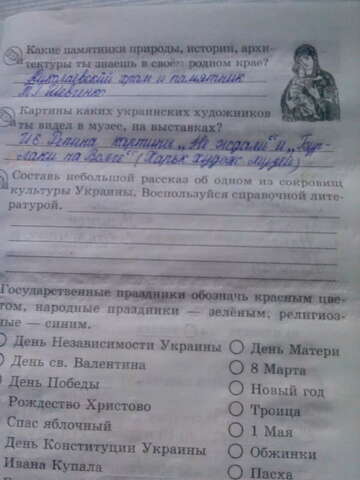 Какие памятники природы, истории, архи-
тектуры ты знаешь в своём родном крае?
Николаевский храм и памятник
Т.Г. Шевченко
Картины каких украинских художников
ты видел в музее, на выставках?
И.Е. Репина картины „Не ждали“ и „Бур-
лаки на Волге“ (Харьк. Худож. Музей)
Составь небольшой рассказ об одном из сокровищ
культуры Украины. Воспользуйся справочной лите-
ратурой.
Государственные праздники обозначь красным цве-
том, народные праздники — зелёным, религиоз-
ные — синим.
День Независимости Украины
День Матери
День св. Валентина
8 Марта
День Победы
Новый год
Рождество Христово
Троица
Спас яблочный
1 Мая
День Конституции Украины
Обжинки
Ивана Купала
Пасха